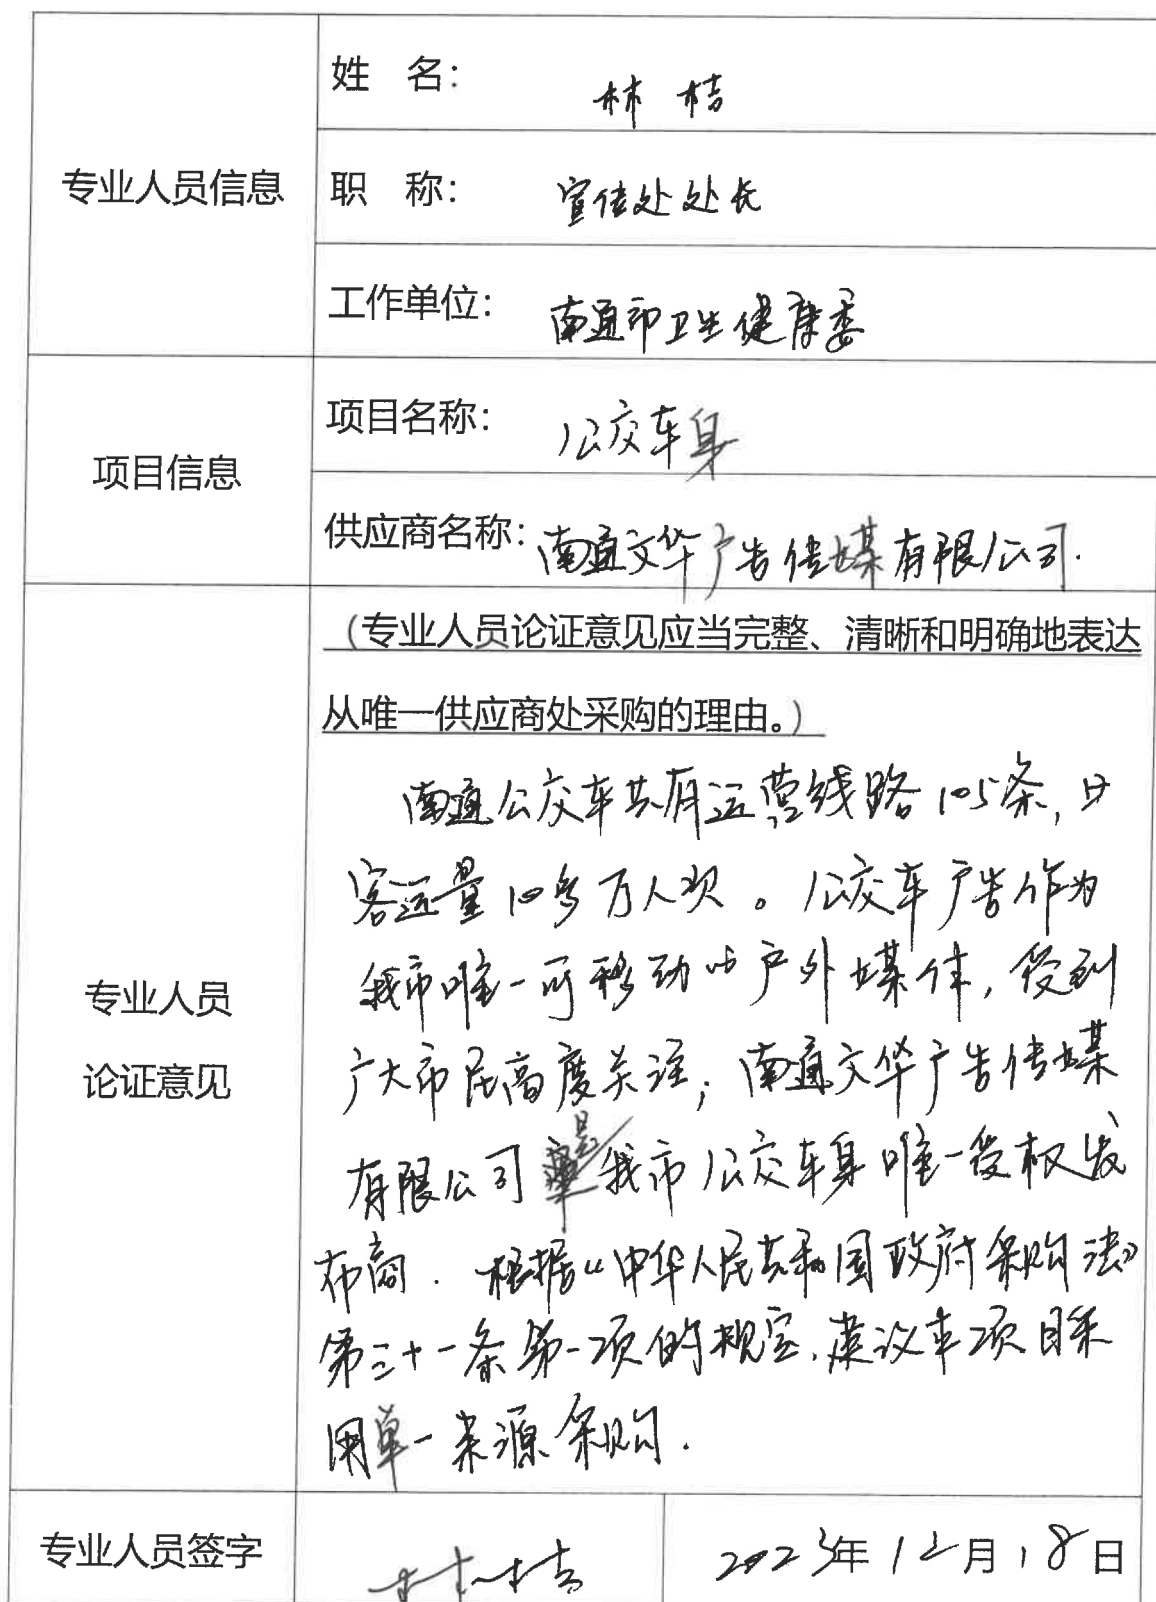 姓 名： 林 桔
专业人员信息
职 称： 宣传处处长
工作单位： 南通市卫生健康委
项目名称： 公交车身
项目信息
供应商名称： 南通文华广告传媒有限公司.
（专业人员论证意见应当完整、清晰和明确地表达
从唯一供应商处采购的理由。）
南通公交车共有运营线路105条，日
客运量10多万人次。公交车广告作为
我市唯一可移动的户外媒体，受到
专业人员
论证意见
广大市民高度关注；南通文华广告传媒
有限公司是我市公交车身唯一授权发
布商．根据《中华人民共和国政府采购法》
第三十一条第一项的规定，建议本项目采
用单一来源采购．
专业人员签字 林桔 2023年12月18日